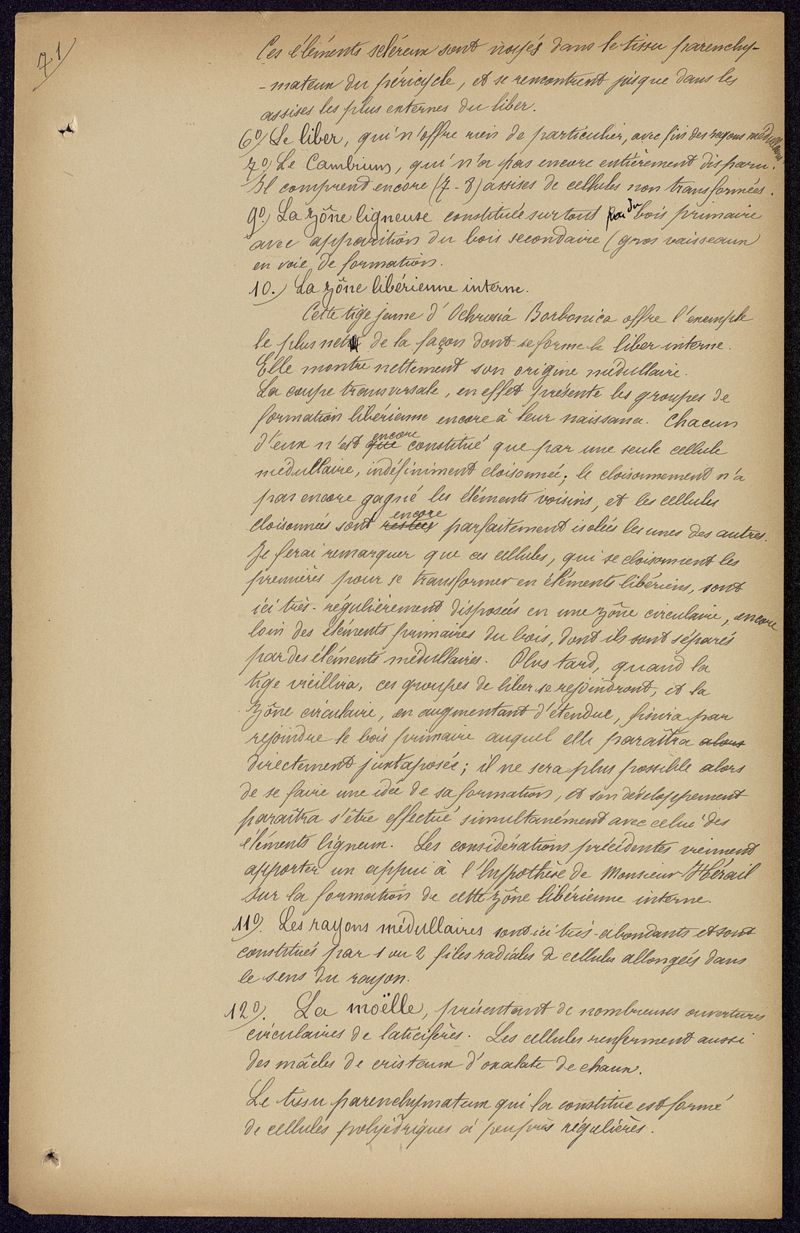 71
Ces éléments scléreux sont noyés dans le tissu parenchy-
-mateux du péricycle, et se rencontrent jusque dans les
assises les plus externes du liber.
6º) Le liber, qui n'offre rien de particulier, avec fins des rayons médullaires
7º) Le Cambium, qui n'a pas encore entièrement disparu.
Il comprend encore (7-8) assises de cellules non transformées.
9º) La zône ligneuse constituée surtout par du bois primaire
avec apparition du bois secondaire (gros vaisseaux
en voie de formation.
10.) La zône libérienne interne.
Cette tige jeune d'Ochrosia Borbonica offre l'exemple
le plus net de la façon dont se forme le liber interne.
Elle montre nettement son origine médullaire.
La coupe transversale, en effet présente les groupes de
formation libérienne encore à leur naissance. Chacun
d'eux n'est que encore constitué que par une seule cellule
médullaire, indéfiniment cloisonnée; le cloisonnement n'a
pas encore gagné les éléments voisins, et les cellules
cloisonnées sont restées encore parfaitement isolées les unes des autres.
Je ferai remarquer que ces cellules, qui se cloisonnent les
premières pour se transformer en éléments libériens, sont
ici très-régulièrement disposées en une zône circulaire, encore
loin des éléments primaires du bois, dont ils sont séparés
par des éléments médullaires. Plus tard, quand la
tige vieillira, ces groupes de liber se rejoindront, et la
zône circulaire, en augmentant d'étendue, finira par
rejoindre le bois primaire auquel elle paraîtra alors
directement juxtaposée; il ne sera plus possible alors
de se faire une idée de sa formation, et son développement
paraîtra s'être effectué simultanément avec celui des
éléments ligneux. Les considérations précédentes viennent
apporter un appui à l'hypothèse de Monsieur Hérail
sur la formation de cette zône libérienne interne.
11º). Les rayons médullaires sont ici très-abondants et sont
constitués par 1 ou 2 files radiales de cellules allongées dans
le sens du rayon.
12º). La moëlle, présentant de nombreuses ouvertures
circulaires de laticifères. Les cellules renferment aussi
des mâcles de cristaux d'oxalate de chaux.
Le tissu parenchymateux qui la constitue est formé
de cellules polyédriques à peu près régulières.